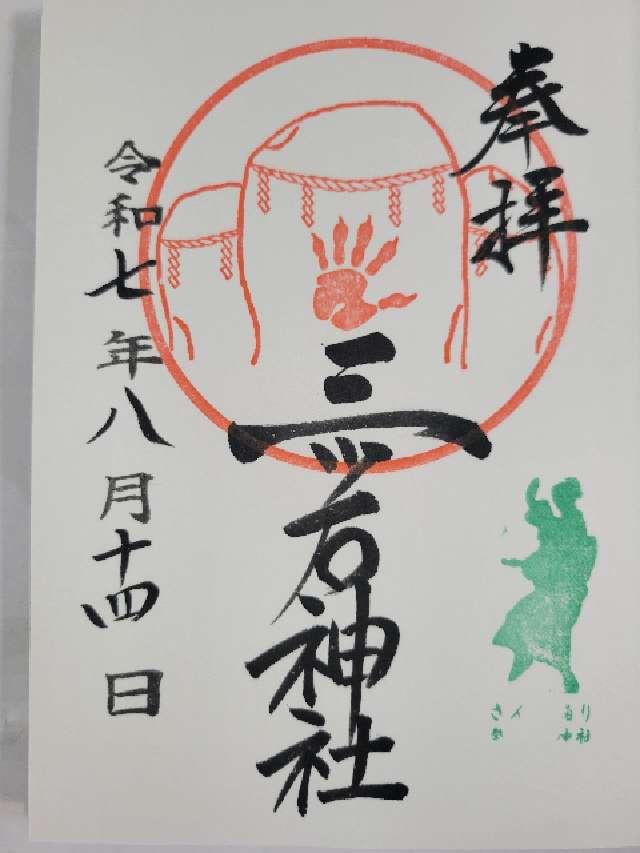 奉拝
三ツ石神社
令和七年八月十四日